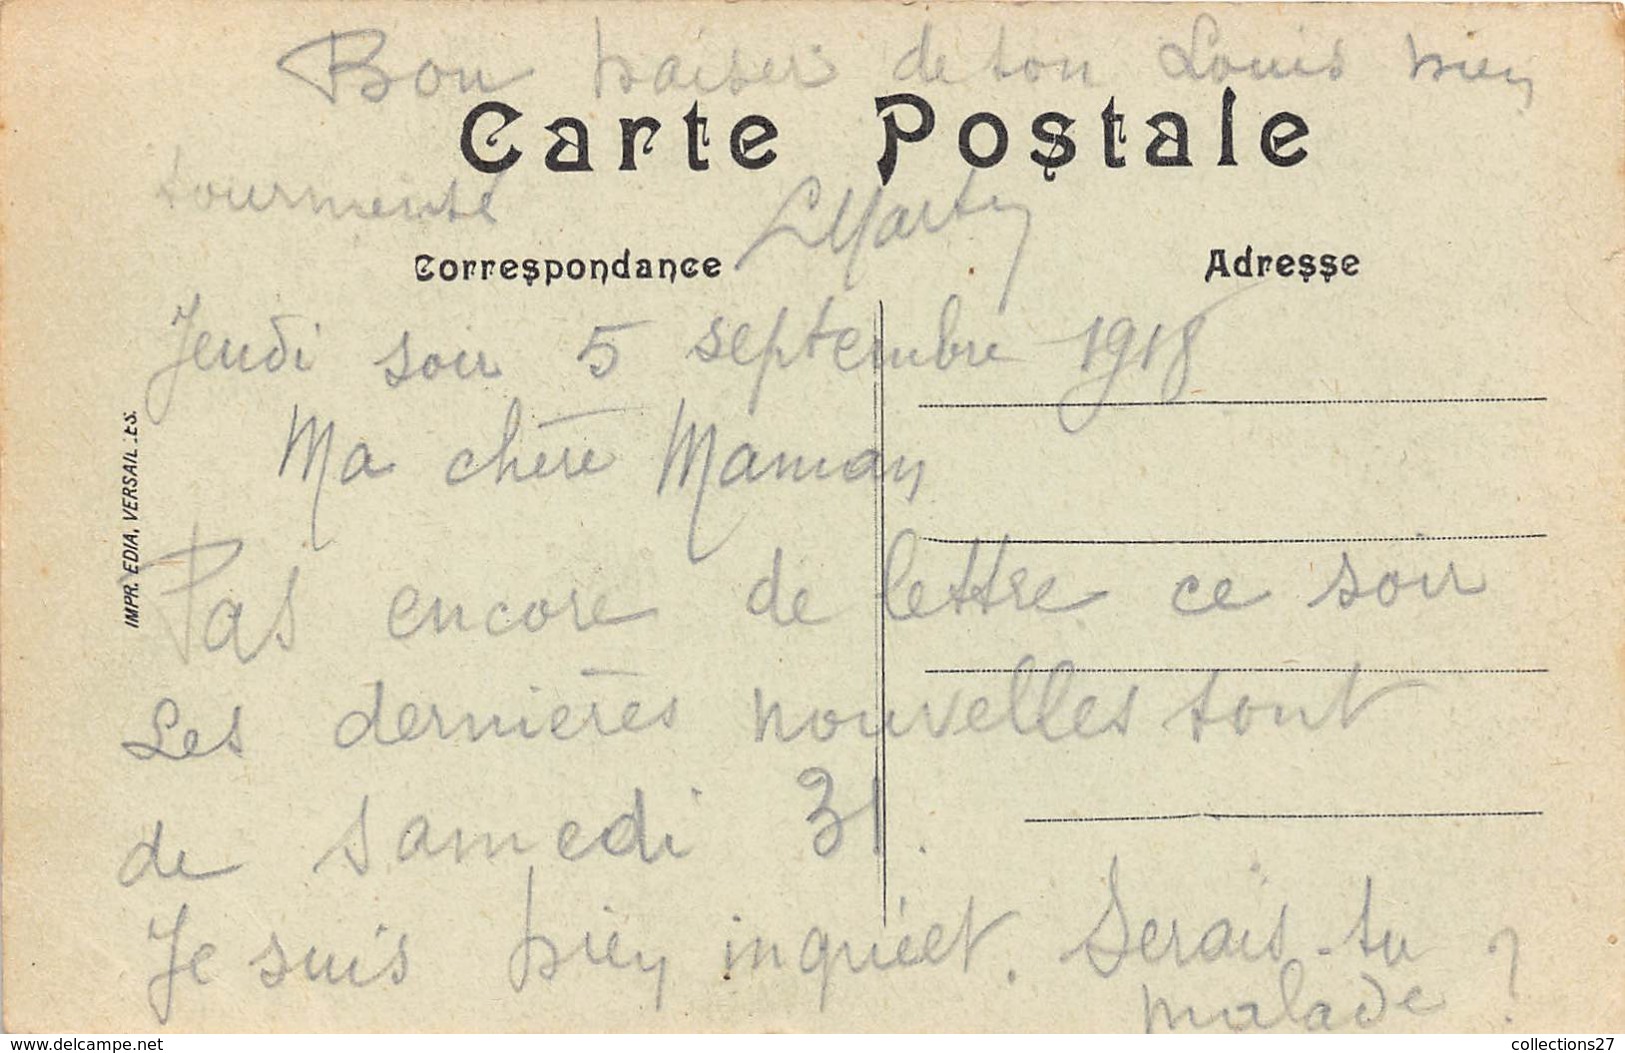 Bon baiser de ton Louis bien
Carte Postale
tourmenté LMartin
Correspondance
Adresse
Jeudi soir 5 septembre 1918
Ma chère Maman
IMPR. EDIA, VERSAILLES.
Pas encore de lettre ce soir
Les dernières nouvelles sont
de samedi 31.
Je suis bien inquièt. Serais-tu
malade ?
collections27